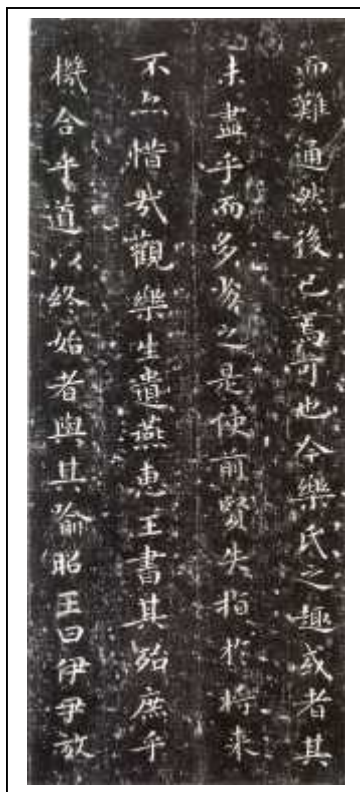 而難通然後已焉可也今樂氏之趣或者其
未盡乎而多劣之是使前賢失指於將來
不亦惜哉觀樂生遺燕惠王書其殆庶乎
機合乎道以終始者與其喻昭王曰伊尹放